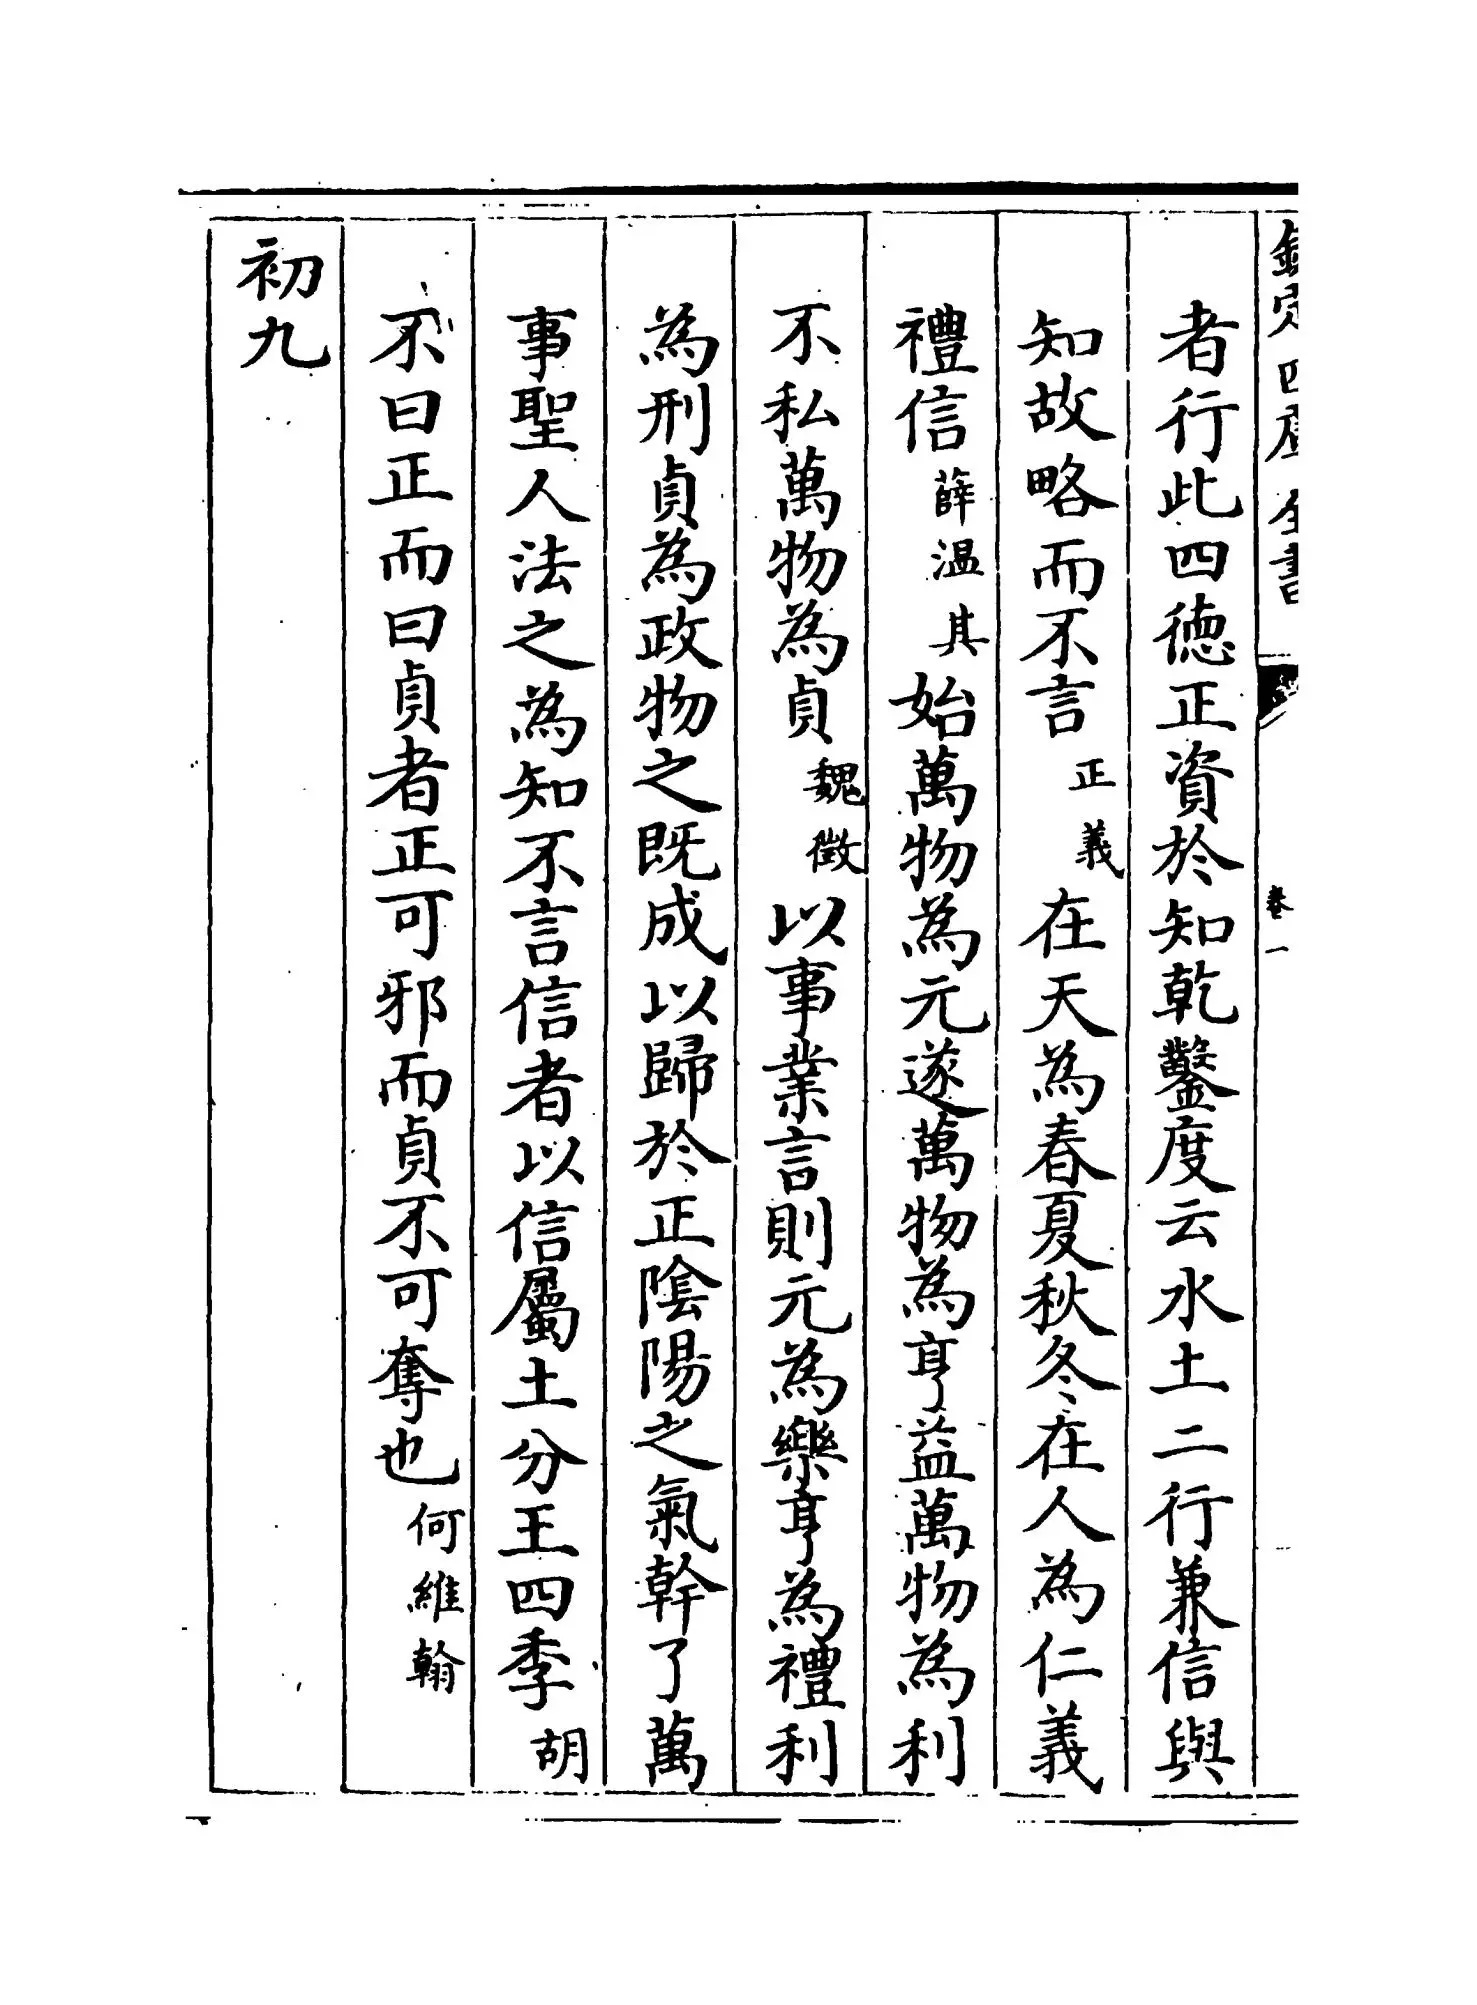 欽定四庫全書
卷一
者行此四德正資於知乾鑿度云水土二行兼信與
知故略而不言正義在天為春夏秋冬在人為仁義
禮信薛温其始萬物為元遂萬物為亨益萬物為利
不私萬物為貞魏徵以事業言則元為樂亨為禮利
為刑貞為政物之既成以歸於正隂陽之氣幹了萬
事聖人法之為知不言信者以信屬土分王四季胡
不曰正而曰貞者正可邪而貞不可奪也何維翰
初九